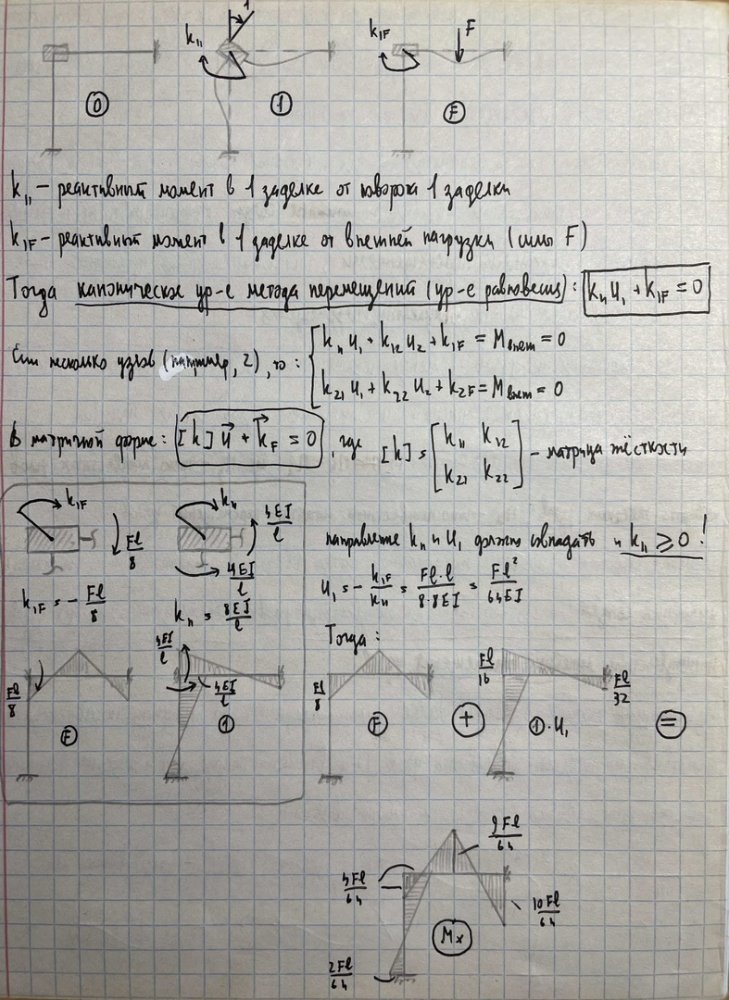 1
k₁₁
k₁F
F
0
1
F
k₁₁ – реактивный момент в 1 заделке от поворота 1 заделки
k₁F – реактивный момент в 1 заделке от внешней нагрузки (силы F)
Тогда каноническое ур-е метода перемещений (ур-е равновесия): k₁₁ u₁ + k₁F = 0
Если несколько узлов (например, 2), то: k₁₁ u₁ + k₁₂ u₂ + k₁F = Mвнеш = 0
k₂₁ u₁ + k₂₂ u₂ + k₂F = Mвнеш = 0
В матричной форме: [k] u⃗ + k⃗F = 0, где [k] = [k₁₁ k₁₂
k₂₁ k₂₂] – матрица жёсткости
k₁F
Fl/8
k₁₁
4EI/l
4EI/l
k₁F = - Fl/8
k₁₁ = 8EI/l
направление k₁₁ и u₁ должно совпадать и k₁₁ ⩾ 0!
u₁ = - k₁F/k₁₁ = Fl·l/8·8EI = Fl²/64EI
Тогда:
Fl/8
F
4EI/l
4EI/l
1
Fl/8
F
+
Fl/16
Fl/32
1·u₁
=
9Fl/64
4Fl/64
10Fl/64
Mx
2Fl/64